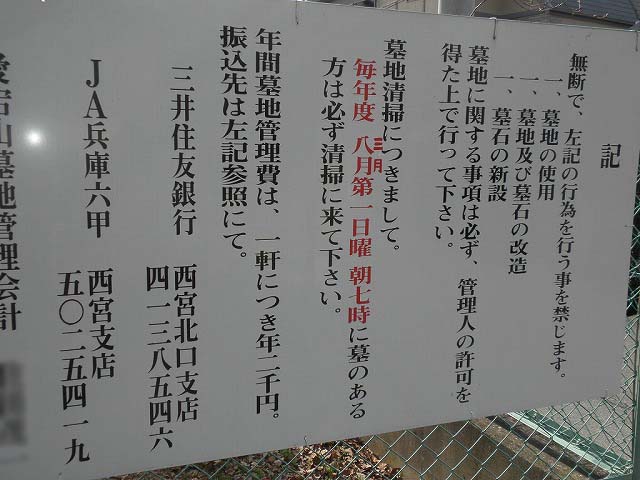 記
無断で、左記の行為を行う事を禁じます。
一、墓地の使用
一、墓地及び墓石の改造
一、墓石の新設
墓地に関する事項は必ず、管理人の許可を
得た上で行って下さい。
墓地清掃につきまして。
毎年度 三月 八月第一日曜 朝七時に墓のある
方は必ず清掃に来て下さい。
年間墓地管理費は、一軒につき年二千円。
振込先は左記参照にて。
三井住友銀行 西宮北口支店
四一三八五四六
JA兵庫六甲 西宮支店
五〇二五四一九
愛宕山墓地管理会計